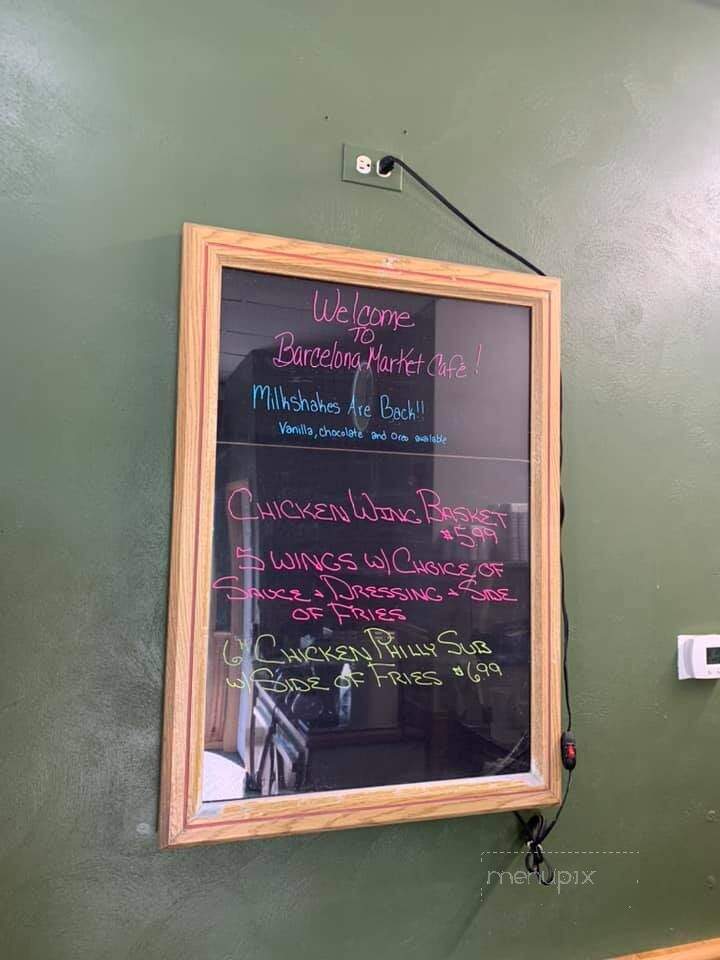 Welcome
To
Barcelona Market Cafe!
Milkshakes Are Back!!
Vanilla, chocolate and Oreo available
CHICKEN WING BASKET
$5.99
5 WINGS W/ CHOICE OF
SAUCE + DRESSING + SIDE
OF FRIES
6" CHICKEN PHILLY SUB
W/ SIDE OF FRIES $6.99
menupix